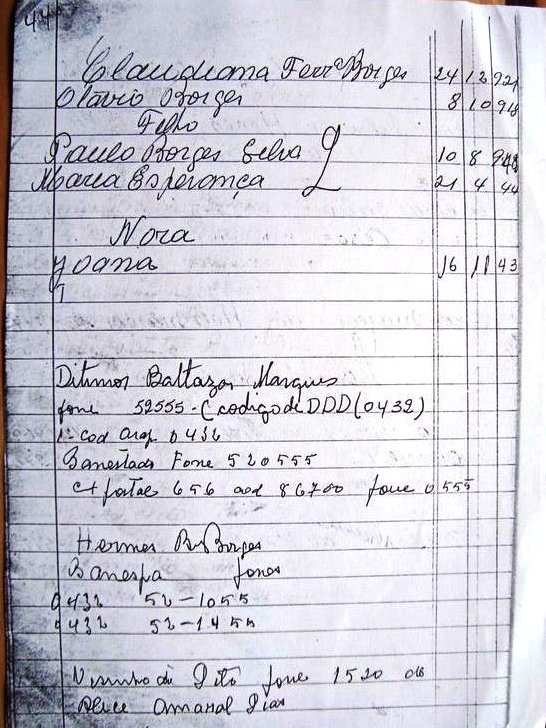 44
Claudiana Ferr Borges 24 12 921
Otávio Borges 8 10 94
Filho
Paulo Borges Silva 10 8
Maria Esperança 21 4 44
Nora
Joana 16 11 43
Baltazar Marques
fone 52555 - (codigo de DDD (0432)
cod 0432
Banestado Fone 520555
656 86700 fone 0555
Hermes R Borges
Banespa fones
0432 52-1055
0432 52-1455
fone 1520
Alice Amaral Dias